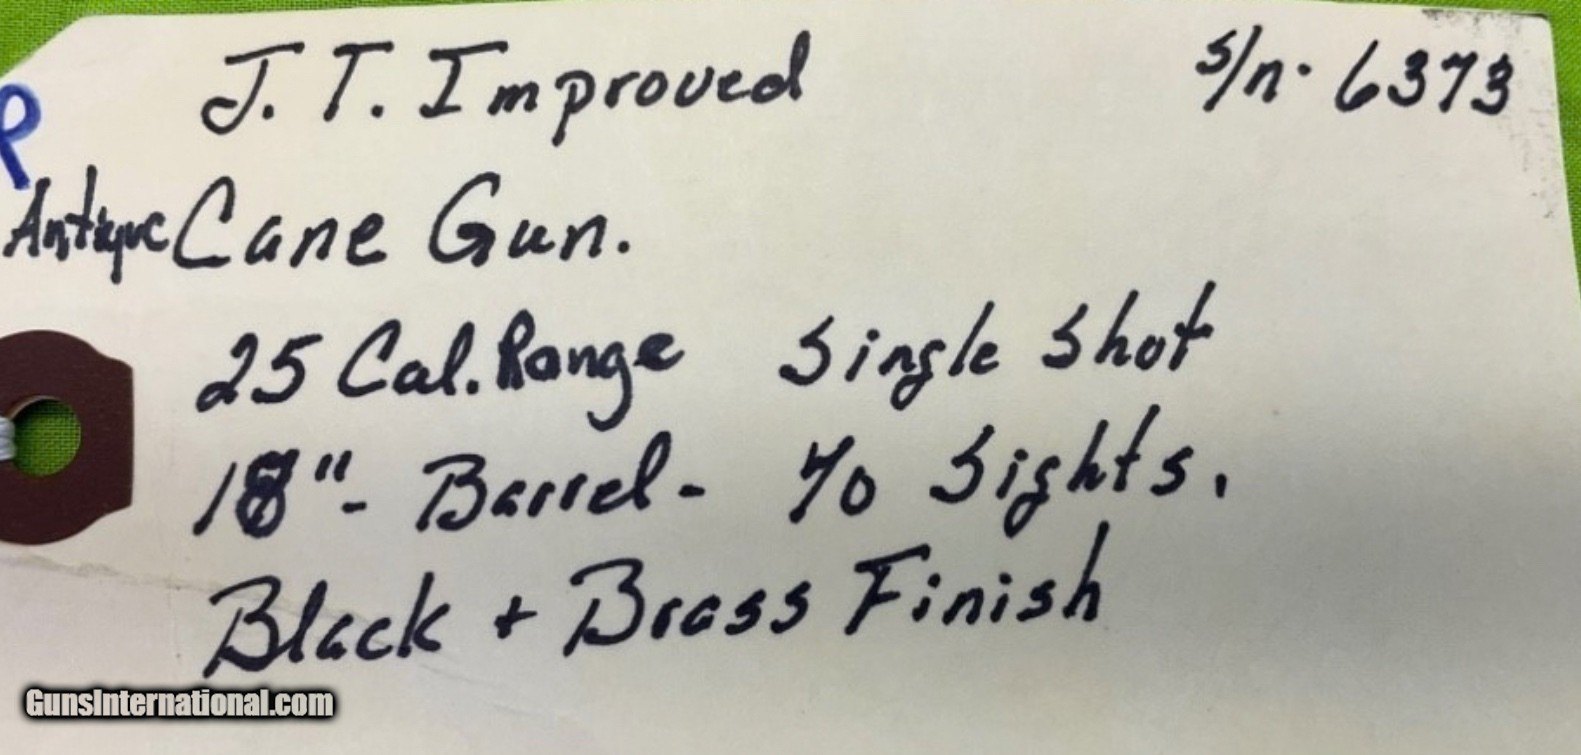 J. T. Improved s/n. 6373
P
Antique Cane Gun.
25 Cal. Range Single Shot
18" - Barrel - No Sights.
Black + Brass Finish
GunsInternational.com